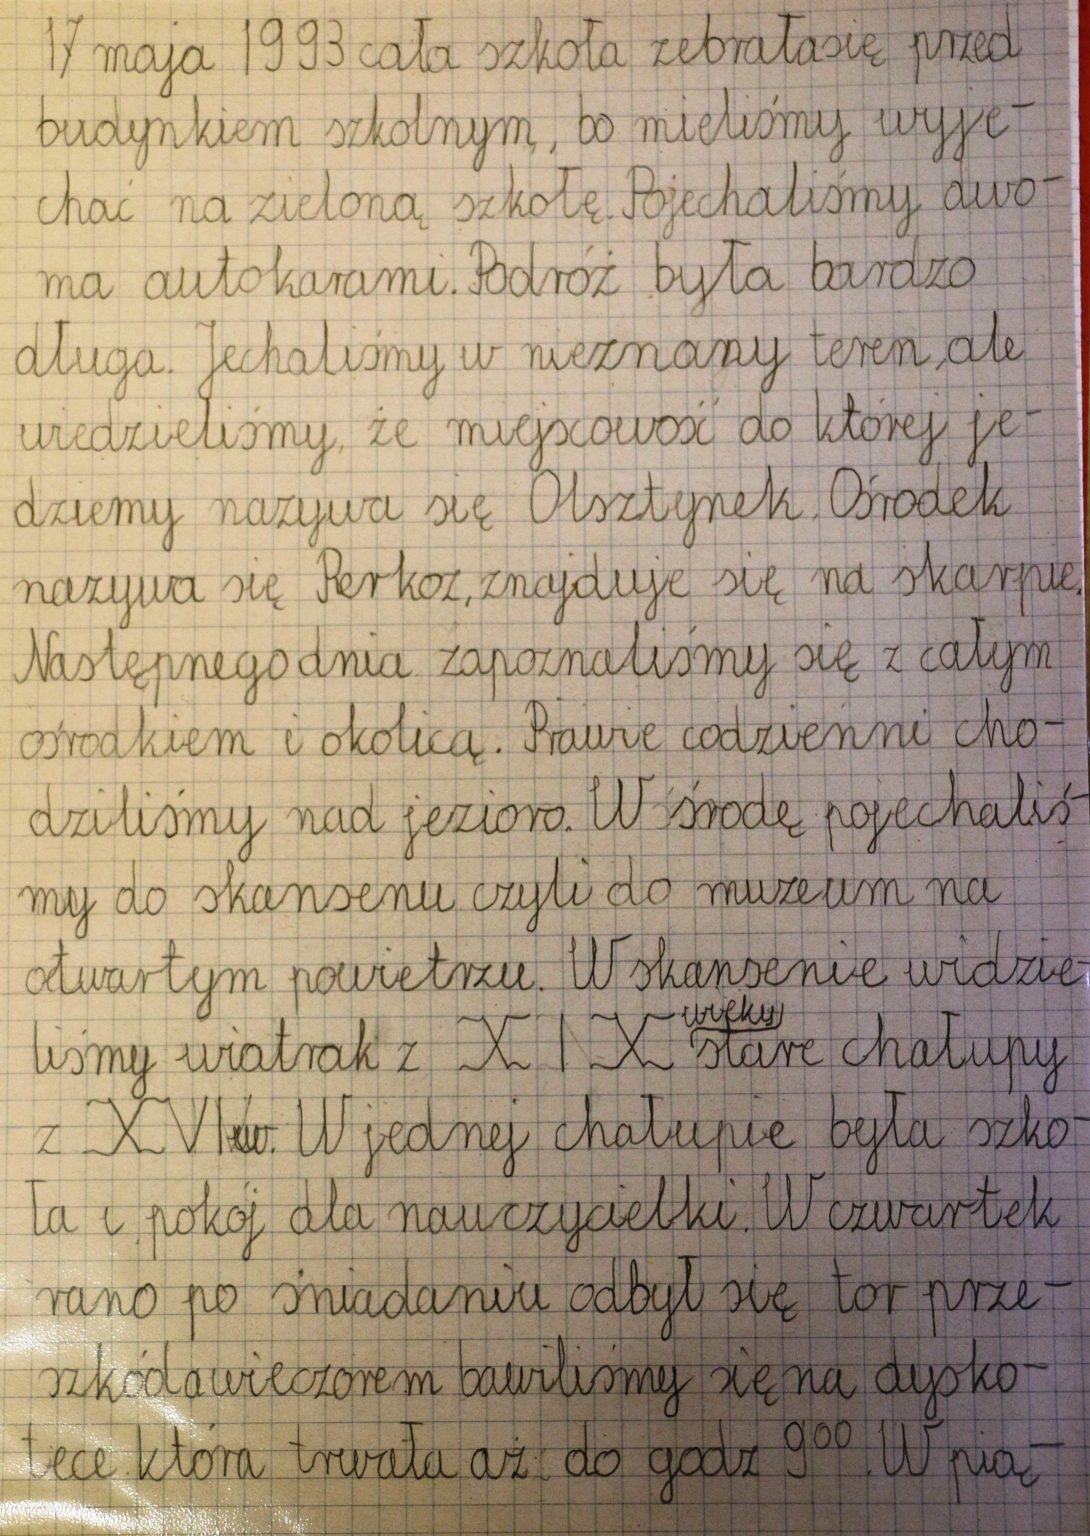 17 maja 1993 cała szkoła zebrała się przed
budynkiem szkolnym, bo mieliśmy wyje-
chać na zieloną szkołę. Pojechaliśmy dwo-
ma autokarami. Podróż była bardzo
długa. Jechaliśmy w nieznany teren, ale
wiedzieliśmy, że miejscowość do której je-
dziemy nazywa się Olsztynek. Ośrodek
nazywa się Perkoz, znajduje się na skarpie.
Następnego dnia zapoznaliśmy się z całym
ośrodkiem i okolicą. Prawie codzienni cho-
dziliśmy nad jezioro. W środę pojechaliś-
my do skansenu czyli do muzeum na
otwartym powietrzu. W skansenie widzie-
wieky
liśmy wiatrak z XIX stare chałupy
z XVIw. W jednej chałupie była szko-
ła i pokój dla nauczycielki. W czwartek
rano po śniadaniu odbył się tor prze-
szkód a wieczorem bawiliśmy się na dysko-
tece która trwała aż do godz 9⁰⁰. W pią-